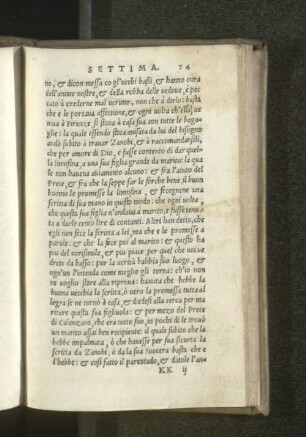 SETTIMA. 74
no, & dicon messa co gl'occhi bassi, & hanno cura
dell'anime nostre, & della robba delle vedove, è pec
cato à crederne mal veruno, non che à dirlo: basta
che e le portava affettione, & ogni volta ch'ella ve
niva à Firenze si stava à casa sua con tutte le baga-
glie: la quale essendo stata avisata da lui del bisogno
andò subito à trovar Zanobi, & à raccomandarsili,
che per amore di Dio, e fusse contento di dar quel-
la limosina, a una sua figlia grande da marito: la qua
le non haveva aviamento alcuno: & fra l'aiuto del
Prete, & fra che la seppe far le forche bene, il buon
huomo le promesse la limosina, & fecegnene una
scritta di sua mano in questo modo: che ogni volta,
che questa sua figlia n'andava a marito, e fusse tenu-
to a darle cento lire di contanti. Altri han detto, che
egli non fece la scritta a lei, ma che e le promesse a
parole: & che la fece poi al marito: & questo ha
piu del verisimile, & piu piace per quel che voi
drete da basso: pur la verità habbia suo luogo, &
ogn'un l'intenda come meglio gli torna: ch'io non
ne voglio stare alla riprova: havuta che hebbe la
buona vecchia la scritta, ò vero la promessa tutta al
legra se ne tornò à casa, & diedesi alla cerca per ma
ritare questa sua figliuola: & per mezo del Prete
di Calenzano, che era tutto suo, in pochi dì le trovò
un marito assai ben recipiente: il quale subito che la
hebbe impalmata, ò che havesse per sua sicurtà la
scritta da Zanobi, ò da la sua suocera basta che e
l'hebbe: & così fatto il parentado, & datole l'anel
KK ij